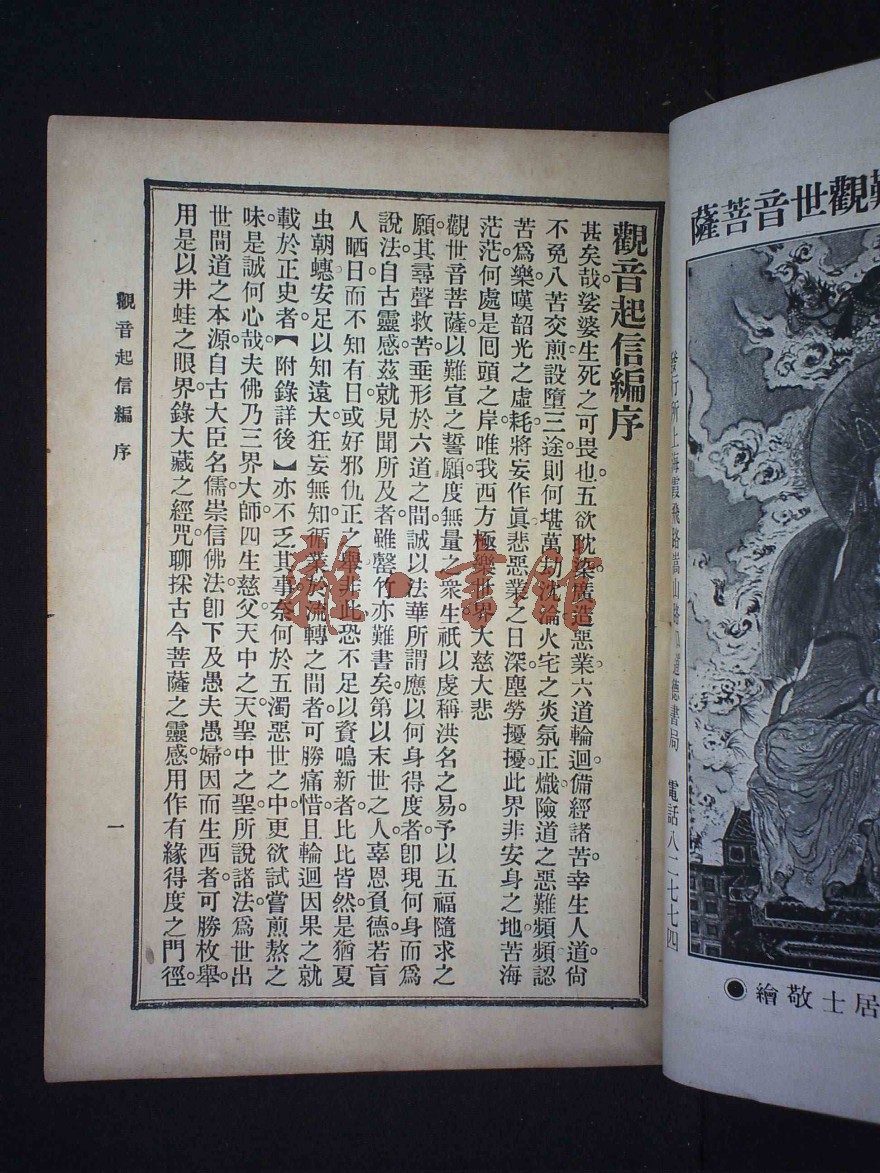 觀音起信編序
甚矣哉。娑婆生死之可畏也。五欲耽染。廣造惡業。六道輪迴。備經諸苦。幸生人道。尙
不免八苦交煎。設墮三途。則何堪萬劫沈淪。火宅之炎氛正熾。險道之惡難頻頻。認
苦爲樂。嘆韶光之虛耗。將妄作眞。悲惡業之日深。塵勞擾擾。此界非安身之地。苦海
茫茫。何處是囘頭之岸。唯我西方極樂世界大慈大悲
觀世音菩薩。以難宣之誓願。度無量之衆生。祇以虔稱洪名之易。予以五福隨求之
願。其尋聲救苦。垂形於六道之間。誠以法華所謂應以何身得度者。卽現何身而爲
說法。自古靈感。茲就見聞所及者。雖罄竹亦難書矣。第以末世之人。辜恩負德。若盲
人晒日而不知有日。或好邪仇正之舉。非此恐不足以資鳴新者。比比皆然。是猶夏
虫朝蟪。安足以知遠大。狂妄無知。循業於流轉之間者。可勝痛惜。且輪迴因果之就
載於正史者。【附錄詳後】亦不乏其事。奈何於五濁惡世之中。更欲試嘗煎熬之
味。是誠何心哉。夫佛乃三界大師。四生慈父。天中之天。聖中之聖。所說諸法。爲世出
世間道之本源。自古大臣名儒。崇信佛法。卽下及愚夫愚婦。因而生西者。可勝枚舉。
用是以井蛙之眼界。錄大藏之經咒。聊採古今菩薩之靈感。用作有緣得度之門徑。
觀音起信編 序
一
難觀世音菩薩
發行所上海霞飛路嵩山路口道德書局 電話八二七七四
居士敬繪
雜·書館